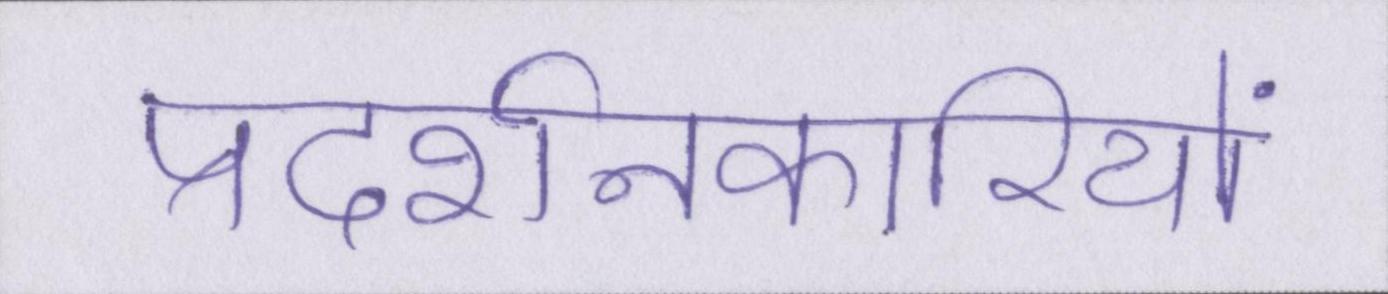 प्रदर्शनकारियों